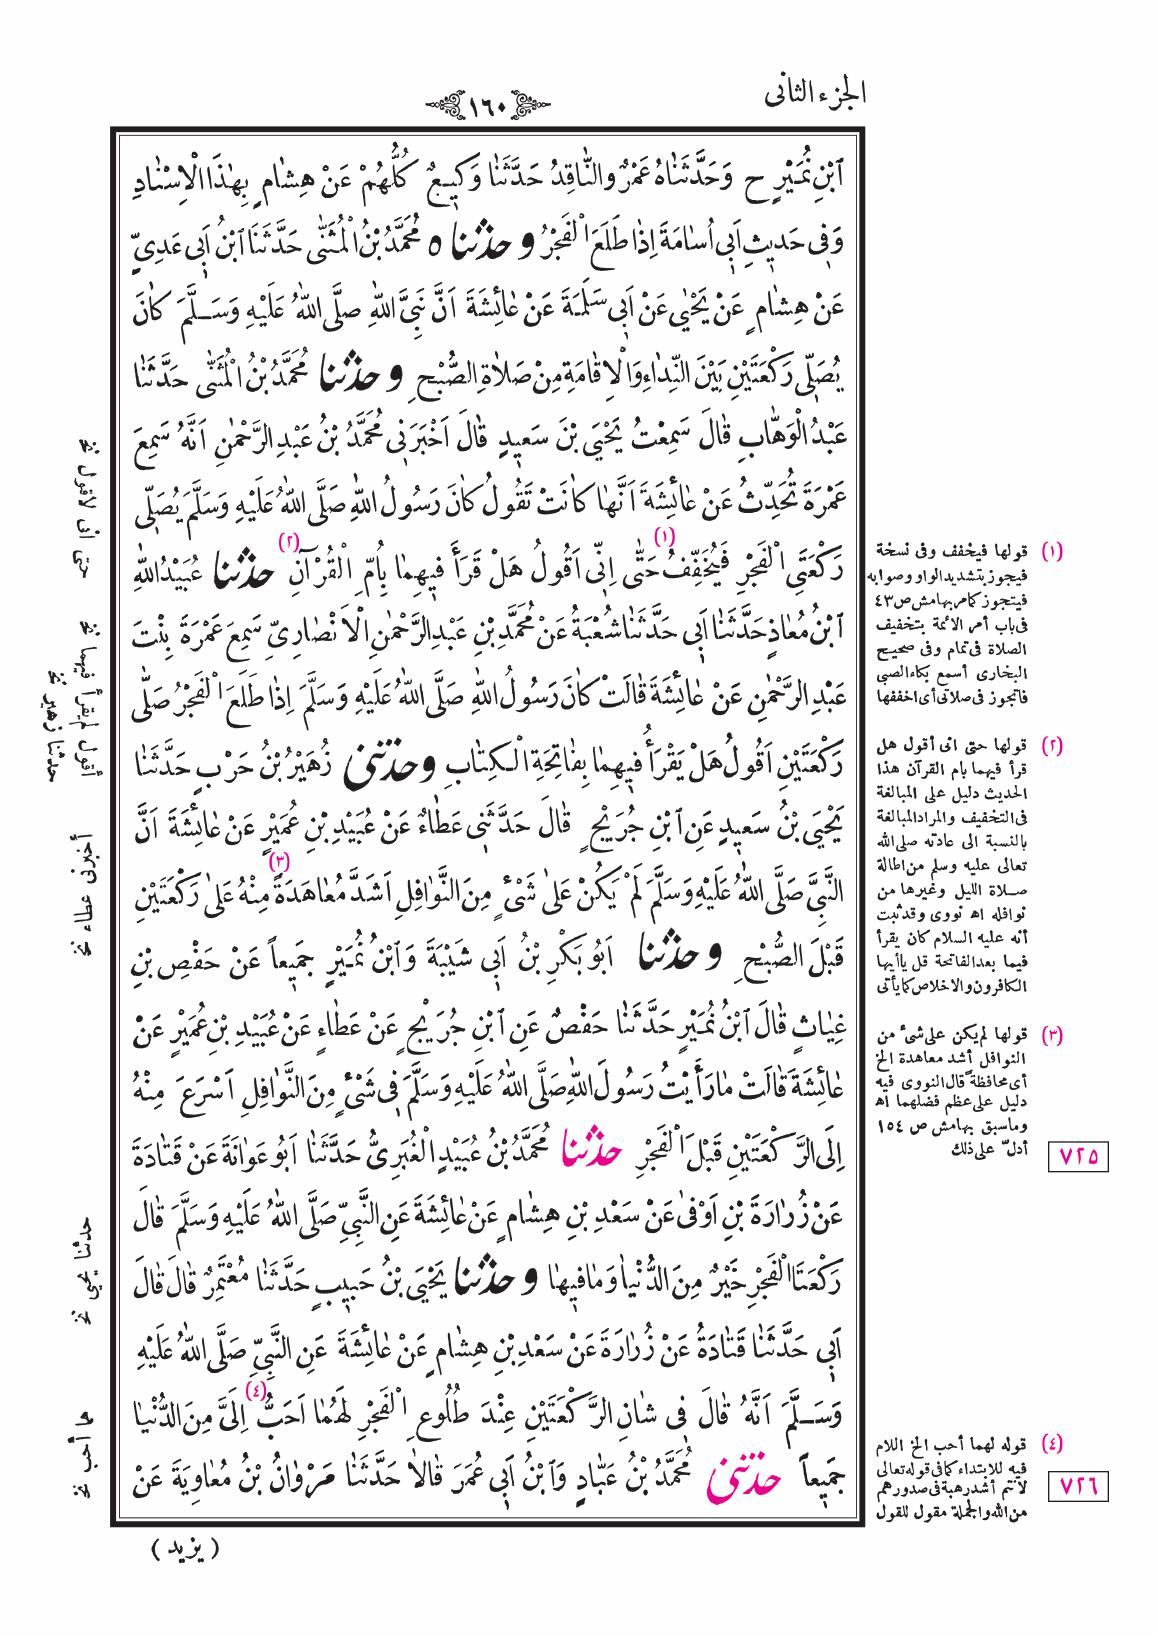 الجزء الثانى
١٦٠
ٱبْنِ نُمَيْرٍ ح وَحَدَّثَنَاهُ عَمْرٌو النَّاقِدُ حَدَّثَنَا وَكِيعٌ كُلُّهُمْ عَنْ هِشَامٍ بِهٰذَا الْاِسْنَادِ
وَفِى حَدِيثِ اَبِى اُسَامَةَ اِذَا طَلَعَ الْفَجْرُ وحدثناه مُحَمَّدُ بْنُ الْمُثَنَّى حَدَّثَنَا ٱبْنُ اَبِى عَدِىٍّ
عَنْ هِشَامٍ عَنْ يَحْيٰى عَنْ اَبِى سَلَمَةَ عَنْ عَائِشَةَ اَنَّ نَبِىَّ اللّٰهِ صَلَّى اللّٰهُ عَلَيْهِ وَسَلَّمَ كَانَ
يُصَلِّى رَكْعَتَيْنِ بَيْنَ النِّدَاءِ وَالْاِقَامَةِ مِنْ صَلَاةِ الصُّبْحِ وحدثنا مُحَمَّدُ بْنُ الْمُثَنَّى حَدَّثَنَا
عَبْدُ الْوَهَّابِ قَالَ سَمِعْتُ يَحْيَى بْنَ سَعِيدٍ قَالَ اَخْبَرَنِى مُحَمَّدُ بْنُ عَبْدِ الرَّحْمٰنِ اَنَّهُ سَمِعَ
عَمْرَةَ تُحَدِّثُ عَنْ عَائِشَةَ اَنَّهَا كَانَتْ تَقُولُ كَانَ رَسُولُ اللّٰهِ صَلَّى اللّٰهُ عَلَيْهِ وَسَلَّمَ يُصَلِّى
رَكْعَتَىِ الْفَجْرِ فَيُخَفِّفُ (١) حَتّٰى اِنِّى اَقُولُ هَلْ قَرَأَ فِيهِمَا بِاُمِّ الْقُرْآنِ (٢) حدثنا عُبَيْدُ اللّٰهِ
ٱبْنُ مُعَاذٍ حَدَّثَنَا اَبِى حَدَّثَنَا شُعْبَةُ عَنْ مُحَمَّدِ بْنِ عَبْدِ الرَّحْمٰنِ الْاَنْصَارِىِّ سَمِعَ عَمْرَةَ بِنْتَ
عَبْدِ الرَّحْمٰنِ عَنْ عَائِشَةَ قَالَتْ كَانَ رَسُولُ اللّٰهِ صَلَّى اللّٰهُ عَلَيْهِ وَسَلَّمَ اِذَا طَلَعَ الْفَجْرُ صَلَّى
رَكْعَتَيْنِ اَقُولُ هَلْ يَقْرَأُ فِيهِمَا بِفَاتِحَةِ الْكِتَابِ وحدثنى زُهَيْرُ بْنُ حَرْبٍ حَدَّثَنَا
يَحْيَى بْنُ سَعِيدٍ عَنِ ٱبْنِ جُرَيْجٍ قَالَ حَدَّثَنِى عَطَاءٌ عَنْ عُبَيْدِ بْنِ عُمَيْرٍ عَنْ عَائِشَةَ اَنَّ
النَّبِىَّ صَلَّى اللّٰهُ عَلَيْهِ وَسَلَّمَ لَمْ يَكُنْ عَلٰى شَىْءٍ مِنَ النَّوَافِلِ اَشَدَّ مُعَاهَدَةً (٣) مِنْهُ عَلٰى رَكْعَتَيْنِ
قَبْلَ الصُّبْحِ وحدثنا اَبُو بَكْرِ بْنُ اَبِى شَيْبَةَ وَٱبْنُ نُمَيْرٍ جَمِيعاً عَنْ حَفْصِ بْنِ
غِيَاثٍ قَالَ ٱبْنُ نُمَيْرٍ حَدَّثَنَا حَفْصٌ عَنِ ٱبْنِ جُرَيْجٍ عَنْ عَطَاءٍ عَنْ عُبَيْدِ بْنِ عُمَيْرٍ عَنْ
عَائِشَةَ قَالَتْ مَا رَأَيْتُ رَسُولَ اللّٰهِ صَلَّى اللّٰهُ عَلَيْهِ وَسَلَّمَ فِى شَىْءٍ مِنَ النَّوَافِلِ اَسْرَعَ مِنْهُ
اِلَى الرَّكْعَتَيْنِ قَبْلَ الْفَجْرِ حدثنا مُحَمَّدُ بْنُ عُبَيْدٍ الْغُبَرِىُّ حَدَّثَنَا اَبُو عَوَانَةَ عَنْ قَتَادَةَ
عَنْ زُرَارَةَ بْنِ اَوْفٰى عَنْ سَعْدِ بْنِ هِشَامٍ عَنْ عَائِشَةَ عَنِ النَّبِىِّ صَلَّى اللّٰهُ عَلَيْهِ وَسَلَّمَ قَالَ
رَكْعَتَا الْفَجْرِ خَيْرٌ مِنَ الدُّنْيَا وَمَا فِيهَا وحدثنا يَحْيَى بْنُ حَبِيبٍ حَدَّثَنَا مُعْتَمِرٌ قَالَ قَالَ
اَبِى حَدَّثَنَا قَتَادَةُ عَنْ زُرَارَةَ عَنْ سَعْدِ بْنِ هِشَامٍ عَنْ عَائِشَةَ عَنِ النَّبِىِّ صَلَّى اللّٰهُ عَلَيْهِ
وَسَلَّمَ اَنَّهُ قَالَ فِى شَانِ الرَّكْعَتَيْنِ عِنْدَ طُلُوعِ الْفَجْرِ لَهُمَا اَحَبُّ (٤) اِلَىَّ مِنَ الدُّنْيَا
جَمِيعاً حدثنى مُحَمَّدُ بْنُ عَبَّادٍ وَٱبْنُ اَبِى عُمَرَ قَالَا حَدَّثَنَا مَرْوَانُ بْنُ مُعَاوِيَةَ عَنْ
( يزيد )
(١) قولها فيخفف وفى نسخة
فيجوز بتشديد الواو وصوابه
فيتجوز كمامر بهامش ص ٤٣
فى باب أمر الأئمة بتخفيف
الصلاة فى تمام وفى صحيح
البخارى أسمع بكاء الصبى
فأتجوز فى صلاتى أى اخففها
(٢) قولها حتى انى أقول هل
قرأ فيهما بام القرآن هذا
الحديث دليل على المبالغة
فى التخفيف والمراد المبالغة
بالنسبة الى عادته صلى الله
تعالى عليه وسلم من اطالة
صلاة الليل وغيرها من
نوافله اه نووى وقد ثبت
أنه عليه السلام كان يقرأ
فيما بعد الفاتحة قل ياأيها
الكافرون والاخلاص كما يأتى
(٣) قولها لم يكن على شئ من
النوافل أشد معاهدة الخ
أى محافظة قال النووى فيه
دليل على عظم فضلهما اه
وماسبق بهامش ص ١٥٤
أدلّ على ذلك
٧٢٥
(٤) قوله لهما أحب الخ اللام
فيه للابتداء كما فى قوله تعالى
لأنتم أشد رهبة فى صدورهم
من الله والجملة مقول للقول
٧٢٦
حتى انى لاقول نخ
أقول لم يقرأ فيهما نخ
حدثنا زهير نخ
أخبرنى عطاء نخ
حدثنا يحيى نخ
ها أحب نخ